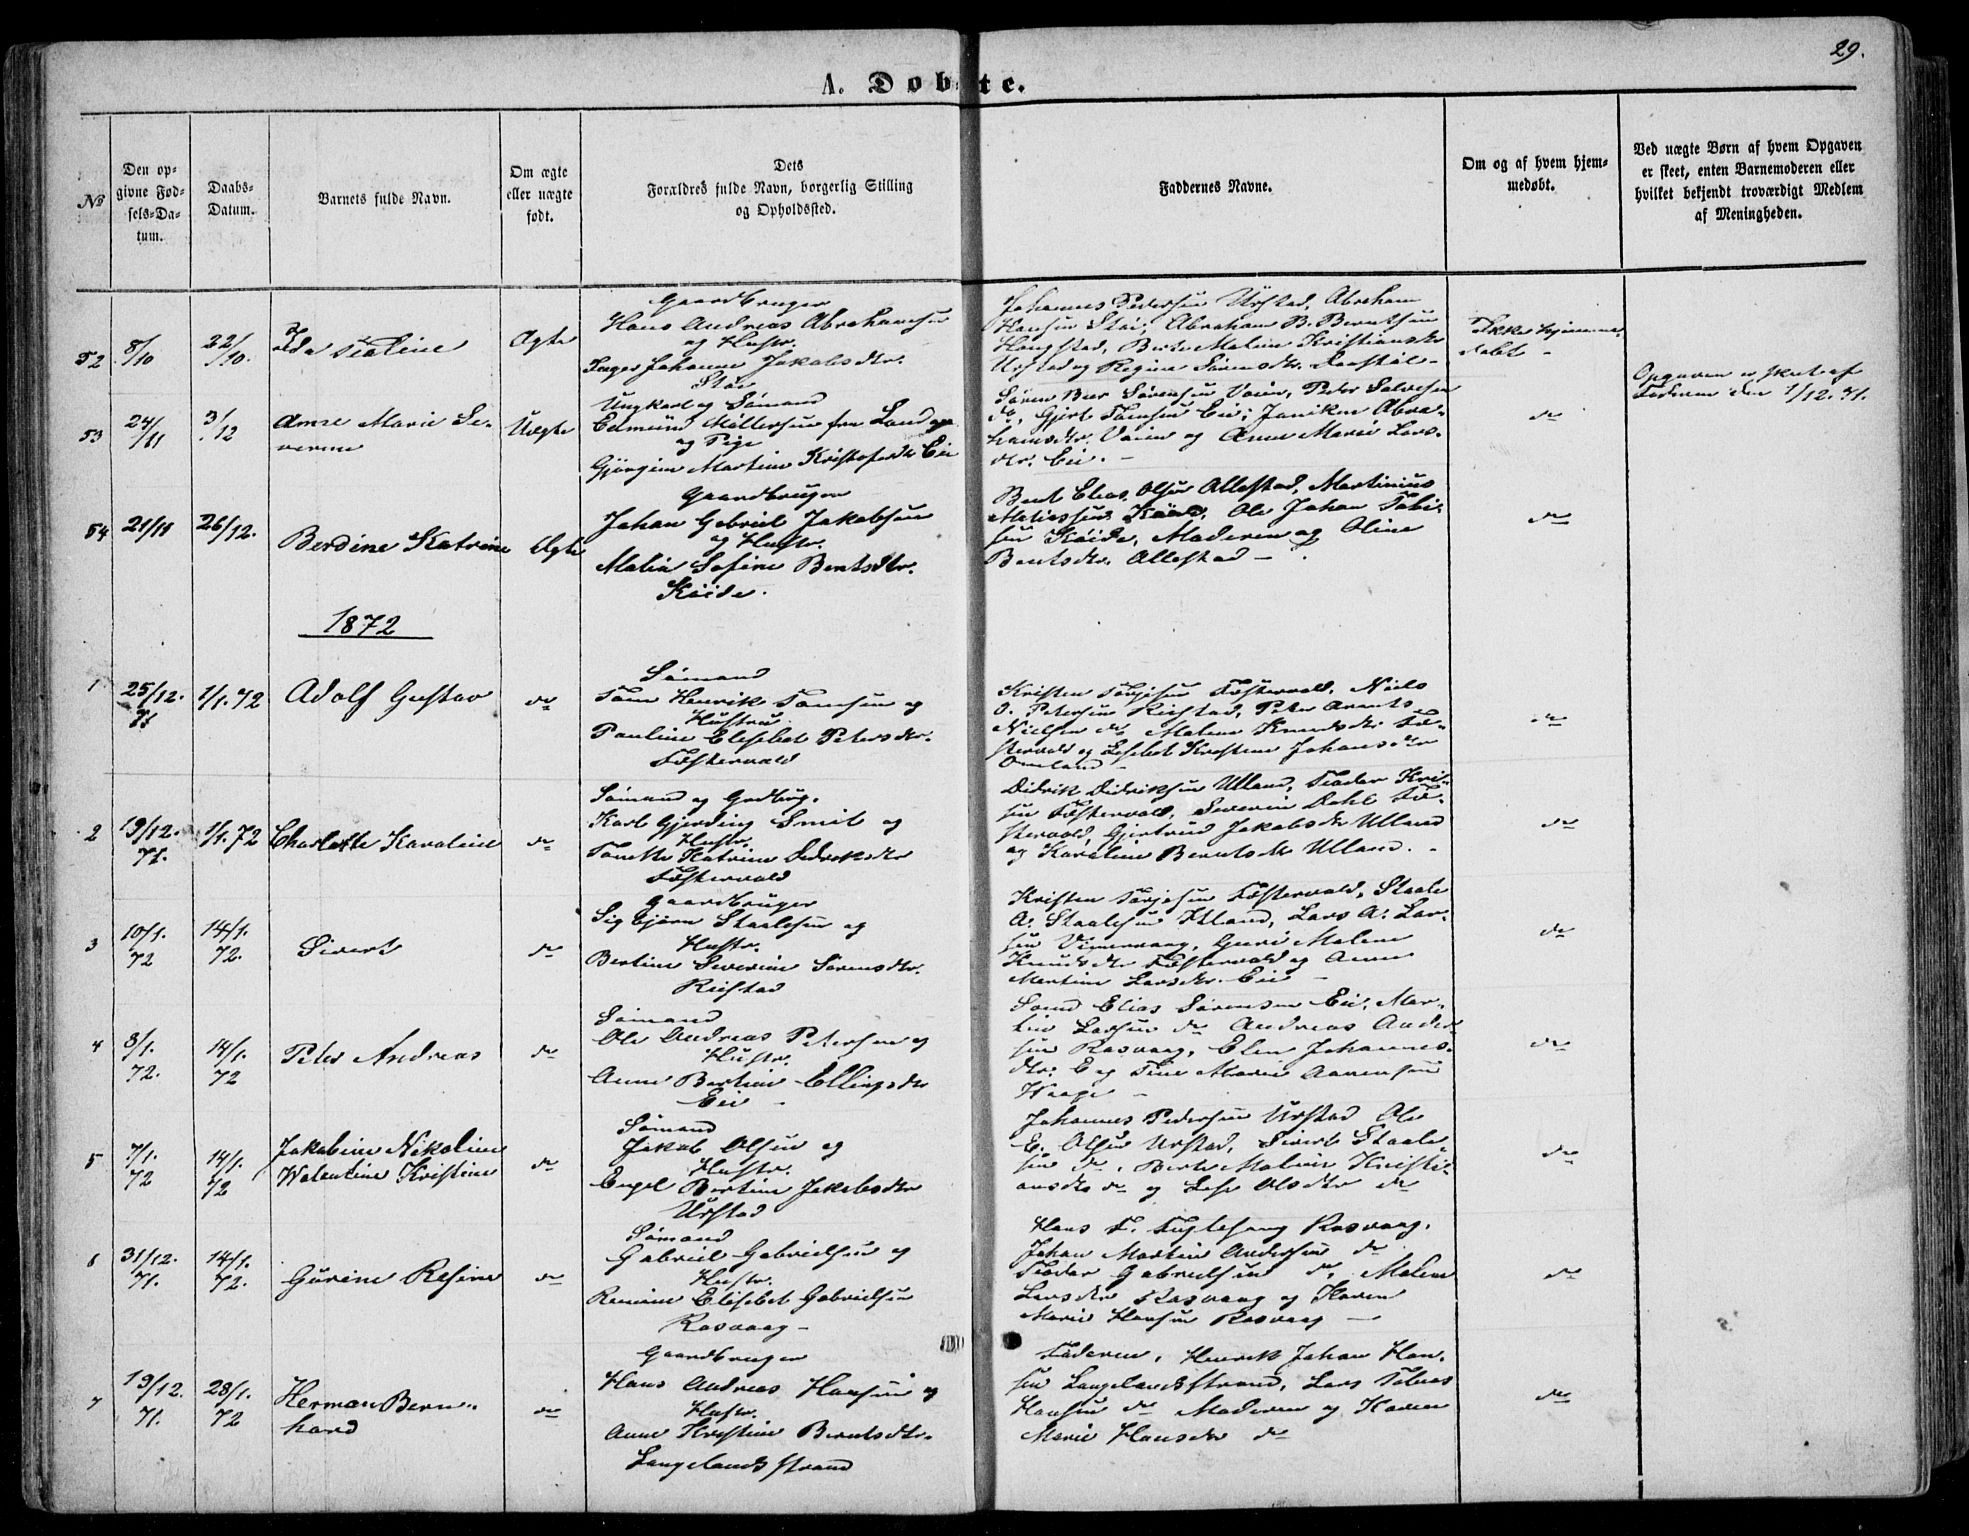 29.
A. Døbte.
№
Den opgivne Fødsels-Datum.
Daabs-Datum.
Barnets fulde Navn.
Om ægte eller uægte født.
Dets Forældres fulde Navn, borgerlig Stilling og Opholdssted.
Faddernes Navne.
Om og af hvem hjemmedøbt.
Ved uægte Børn af hvem Opgaven er skeet, enten Barnemoderen eller hvilket bekjendt troværdigt Medlem af Meningheden.
52
8/10
22/10.
Ida
Ægte
Gaardbruger
Hans Andreas Abrahamsen
og Hustr.
Inger Johanne Jakobsdtr.
Johannes Pedersen Urstad, Abraham
Hansen Stai, Abraham B. Berntsen
Haugstad, Berte Malene Kristiansdtr
Urstad og Regine Sørensdtr.
Ikke hjemme-
døbt -
53
24/11
3/12
Anne Marie Se-
verine
Uægte
Ungkarl og Sømand
Edmund Møllersen fra
og Pige
Gjørgine Martine Kristofersdtr Eie
Søren Beer Sørensen Vaien, Peder Salvesen
do, Gjert Tønnesen Eie, Janiken Abra-
hamsdtr. Vaien og Anne Marie Lars-
dtr. Eie. -
do
Opgaven er skeet af
Faderen den 1/12.71.
54
21/11
26/12.
Berdine Katrine
Ægte
Gaardbruger
Johan Gabriel Jakobsen
og Hustr.
Malin Sofine Berntsdtr.
Køide.
Bent Elias Olsen Allestad, Martinius
Mathiassen Køide, Ole Johan Tobi-
sen Køide, Moderen og Oline
Berntsdtr. Allestad -
do
1872
1
25/12.
71
1/1.72
Adolf Gustav
do
Sømand
Tøm Henrik Tomsen og
Hustru
Pauline Elisebet Petersdtr.
Fosservold
Kristen Torjesen Fosservold, Niels
O. Petersen Reistad, Peter Arents
Nielsen do, Malene Knudsdtr Fo-
sservold og Lisebet Kirstine Johansdtr
Omland -
do
2
19/12.
71.
1/1.72
Charlotte Karoline
do
Sømand og Grdbrg.
Karl Gjerding Smit og
Hustr.
Tonette Katrine Didriksdtr
Fosservold
Didrik Didriksen Ulland, Teodor Kri-
sen Fosservold, Severin Dahl Fo-
sservold, Gjertrud Jakobsdtr Ulland
og Karoline Berntsdtr Ulland. -
do
3
10/1.
72
14/1.
72.
Sivert
do
Gaardbruger
Sigbjørn Staalesen og
Hustr.
Bertine Severine Sørensdtr.
Reistad
Kristen Torjesen Fosservold, Staale
A. Staalesen Ulland, Lars A. Lar-
sen Vinnesvaag, Guri Malene
Knudsdtr Fosservold og Anne
Martine Larsdtr. Eie -
do
4
8/1.
72.
14/1.
72
Peter Andreas
do
Sømand
Ole Andreas Petersen og
Hustr.
Anne Bertine Ellingsdtr
Eie -
Sømd Elias Sørensen Eie, Mar-
tin Larsen do Andreas Ander-
sen Rasvaag, Elen Johannes-
dtr. E og Tine Marie Aanensen
Waage -
do
5
7/1.
72
14/1.
72
Jakobine Nikoline
Walentine Kristine
do
Sømand
Jakob Olsen og
Hustr.
Engel Bertine Jakobsdtr
Urstad
Johannes Pedersen Urstad Ole
E. Olsen Urstad, Sivert Staale-
sen do, Berte Malene Kristi-
ansdtr do og Lise Olsdtr do
do
6
31/12.
71.
14/1.
72.
Gurine Resine
do
Sømand
Gabriel Gabrielsen og
Hustr.
Renine Elisebet Gabrielsen
Rasvaag -
Hans F. Fuglesang Rasvaag,
Johan Martin Andersen do
Teodor Gabrielsen do, Malene
Larsdtr Rasvaag og Karen
Marie Hansen Rasvaag -
do
7
19/12.
71.
28/1.
72
Herman Bern-
hard
do
Gaardbruger
Hans Andreas Hansen og
Hustr.
Anne Kristine Berntsdtr.
Langelandsstrand
Faderen, Henrik Johan Han-
sen Langelandsstrand, Lars Tobias
Hansen do Moderen og Karen
Marie Hansdtr do
do